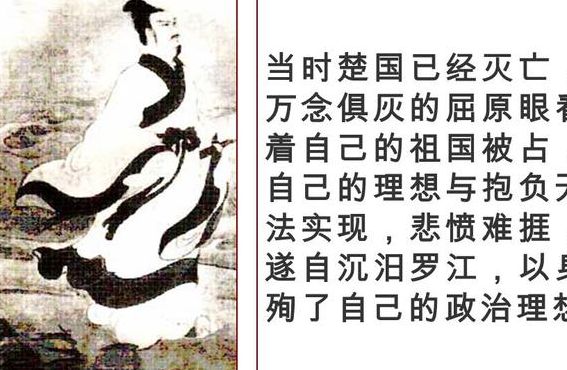 当时楚国已经灭亡，
万念俱灰的屈原眼看
着自己的祖国被占，
自己的理想与抱负无
法实现，悲愤难捱，
遂自沉汨罗江，以身
殉了自己的政治理想